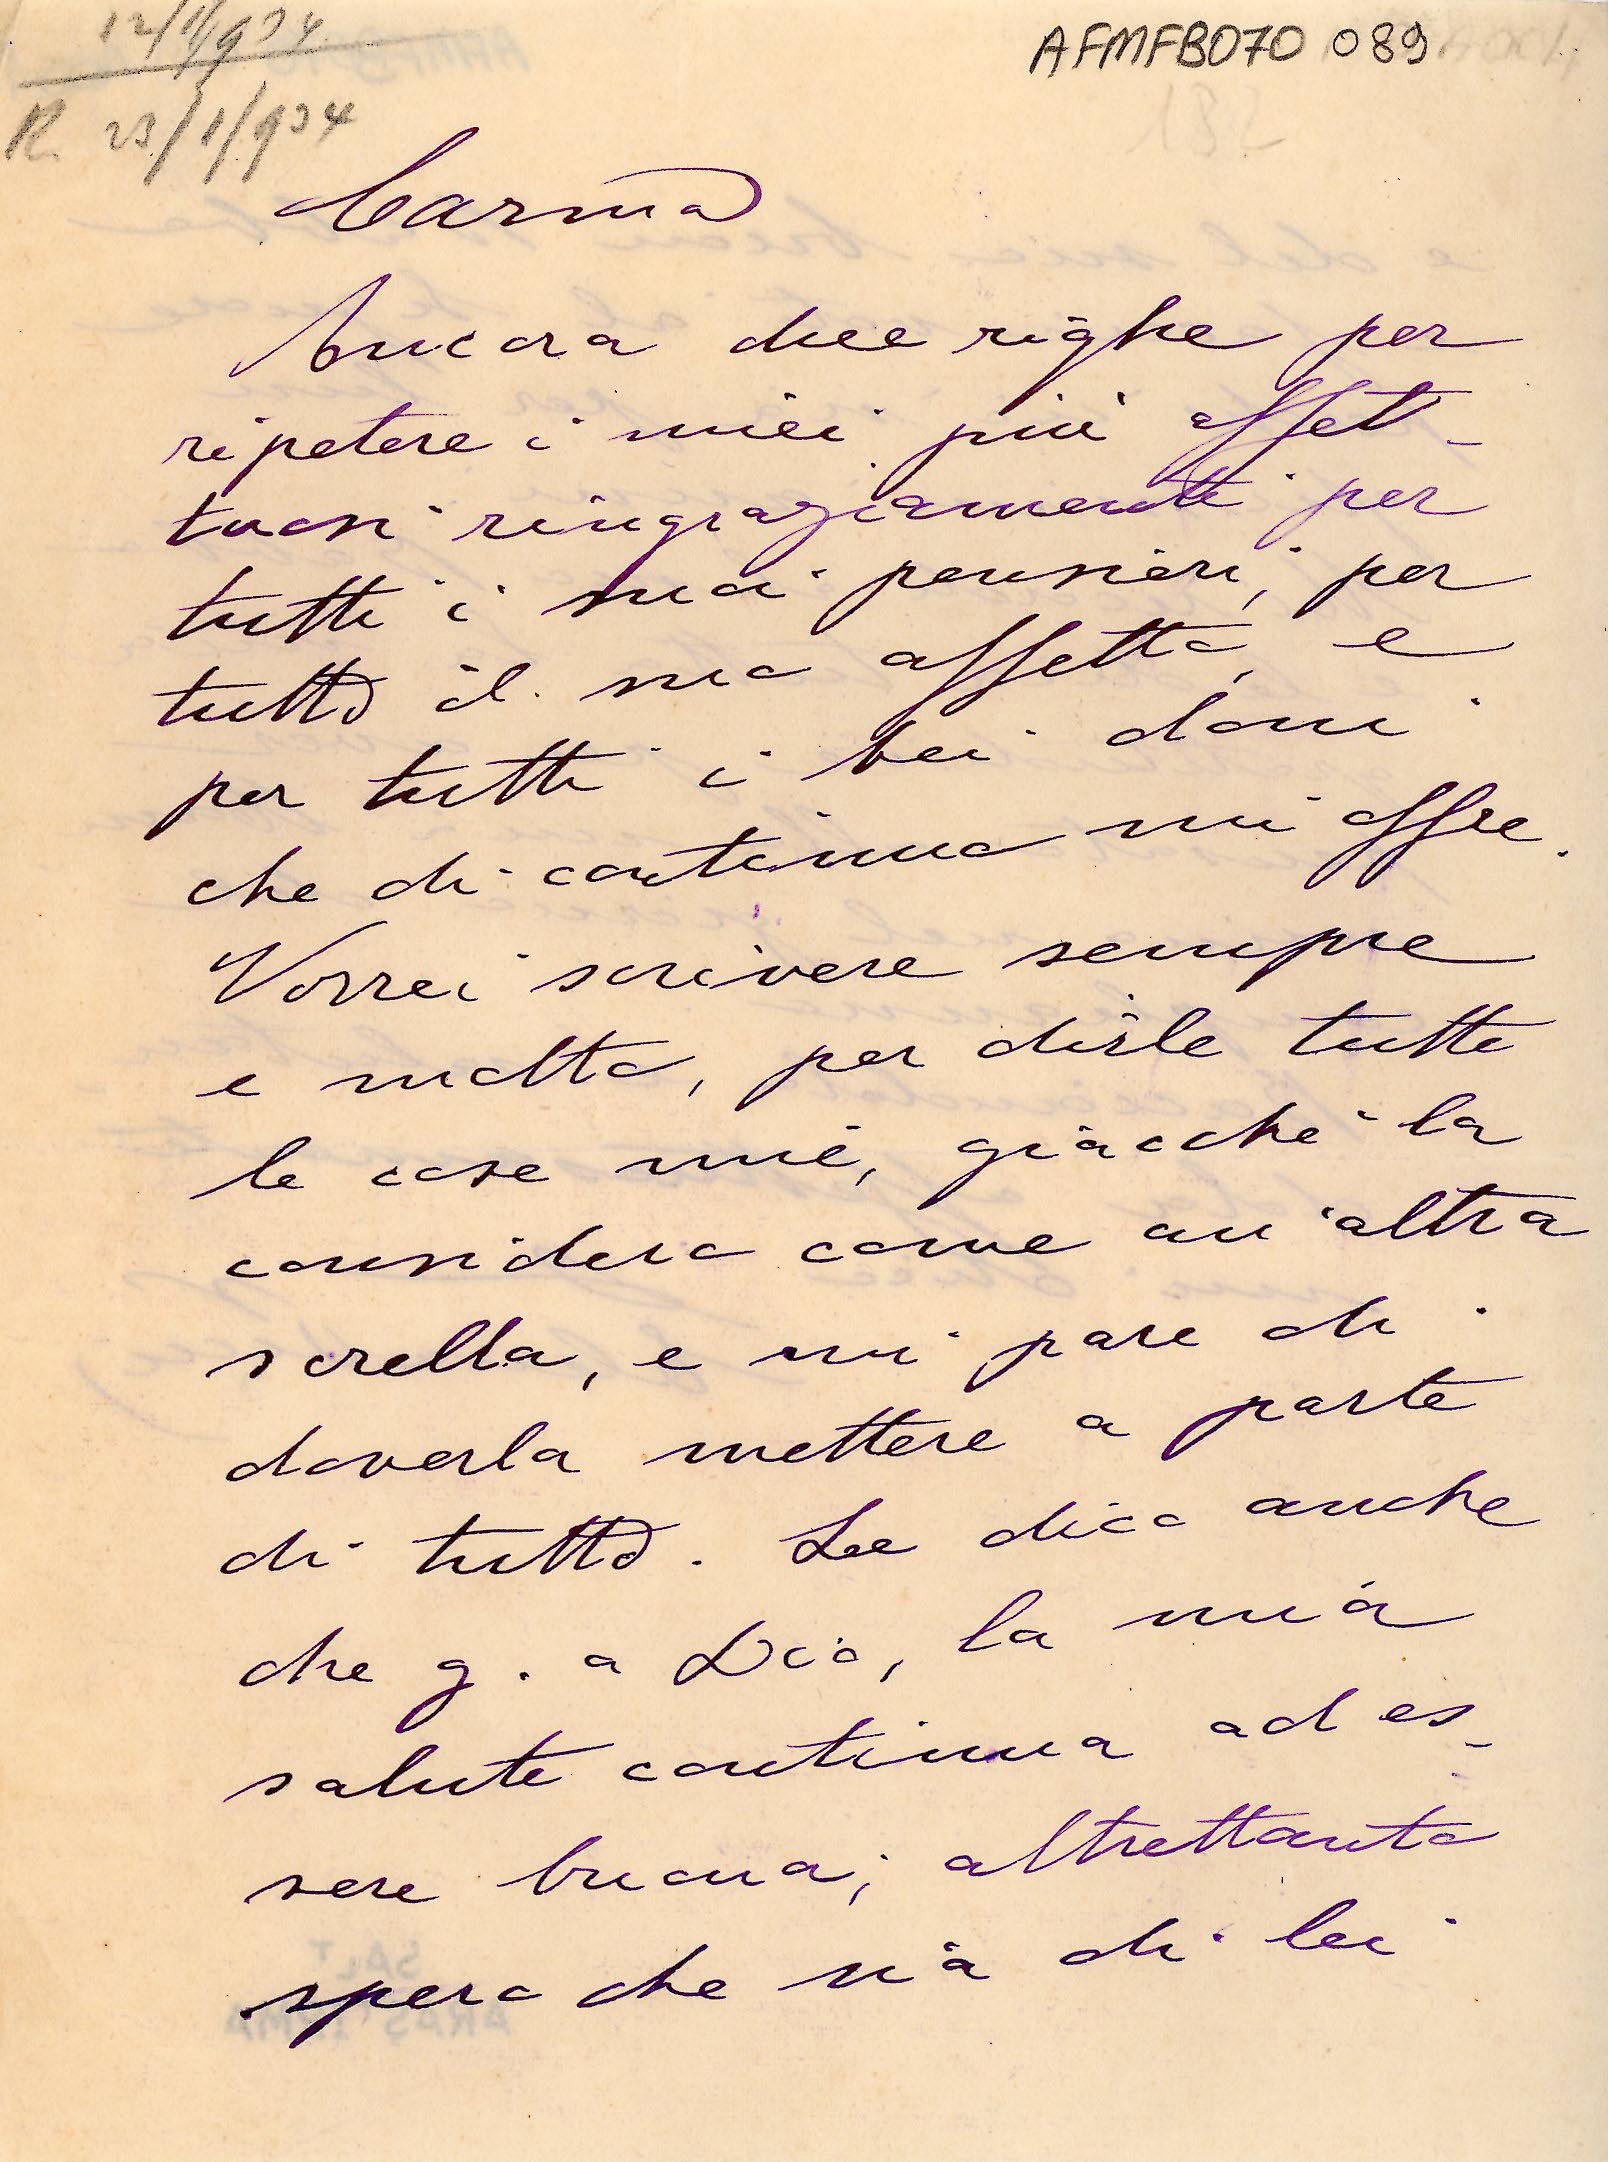 12/1/934
R. 23/1/934
AFMFB070 089
Carma
Ancora due righe per
ripetere i miei più affet-
tuosi ringraziamenti per
tutti i suoi pensieri, per
tutto il suo affetto, e
per tutti i bei doni
che di continuo mi offre.
Vorrei scrivere sempre
e molto, per dirle tutte
le cose mie, giacchè la
considero come un'altra
sorella, e mi pare di
doverla mettere a parte
di tutto. Le dico anche
che g. a Dio, la mia
salute continua ad es-
sere buona; altrettanto
spero che sia di lei
SALT